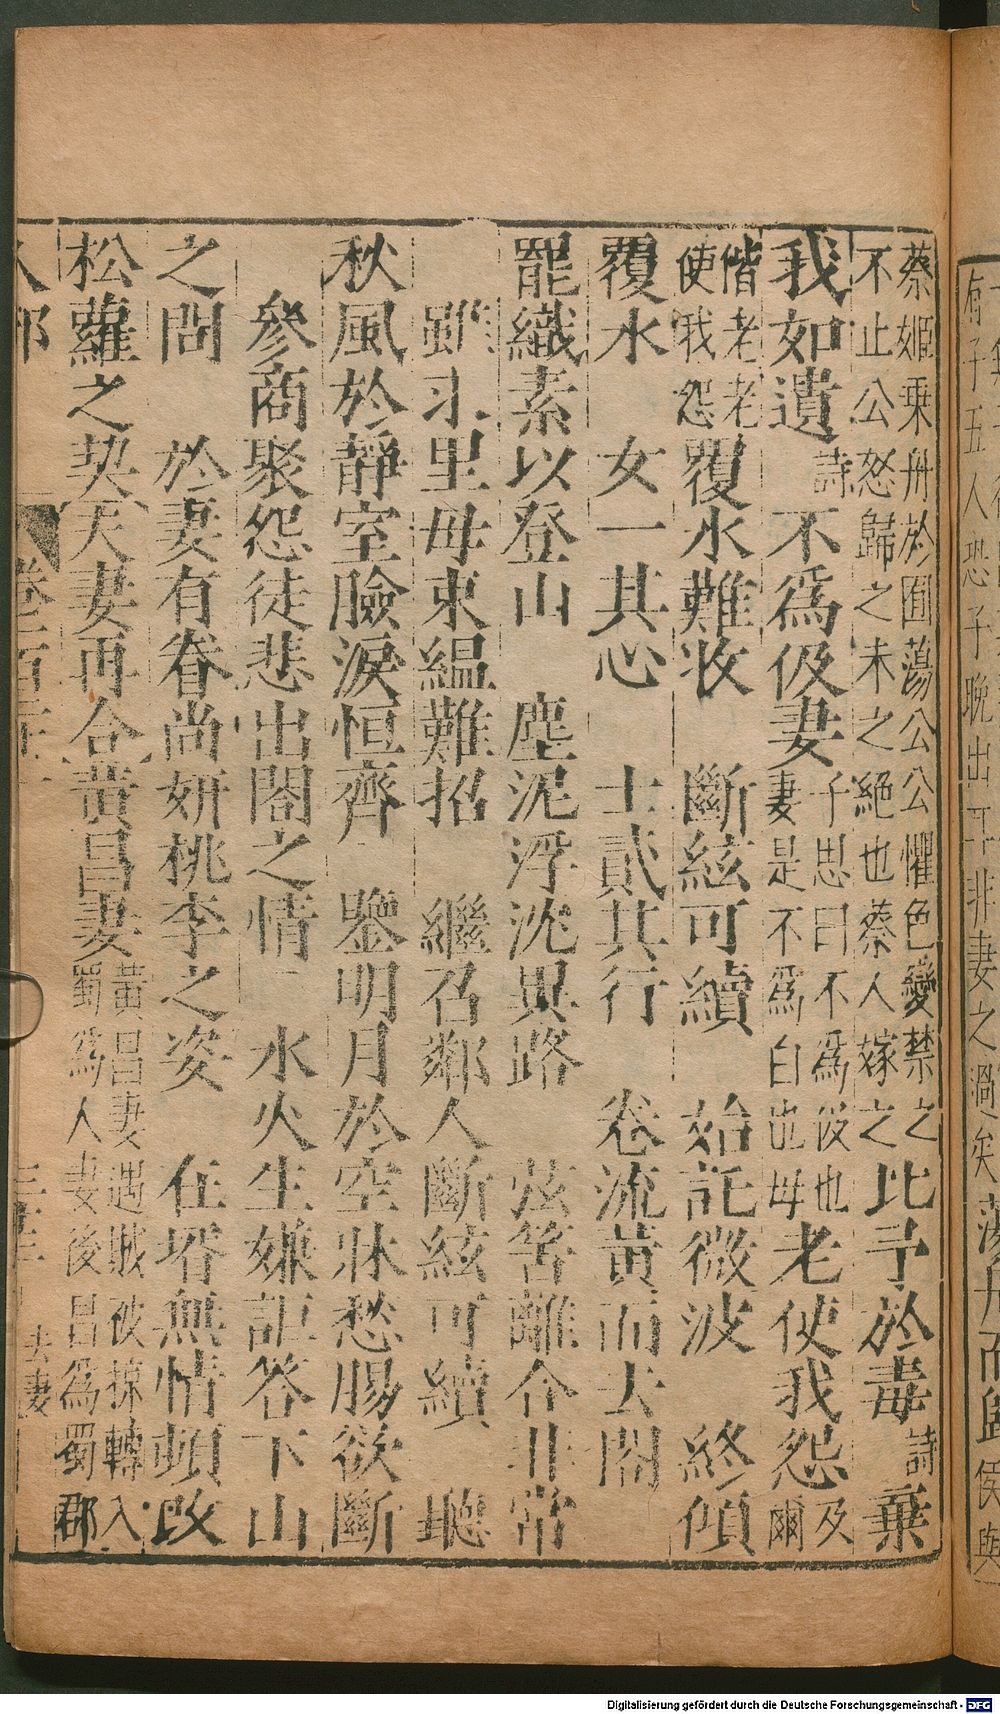 蔡姬乘舟於囿蕩公公懼色變禁之
不止公怒歸之未之絶也蔡人嫁之
比予於毒
詩
棄
我如遺
詩
不爲伋妻
子思曰不爲伋也
妻是不爲白也母
老使我怨
及爾
偕老老
使我怨
覆水難收 斷絃可續 始託微波 終傾
覆水 女一其心 士貳其行 卷流黄而去閤
罷織素以登山 塵泥浮沈異路 弦筈離合非常
雖 里母束緼難招 繼召鄰人斷絃可續 聽
秋風於靜室臉淚恒齊 鑒明月於空牀愁腸欲斷
參商聚怨徒悲出閤之情 水火生嫌詎答下山
之問 於妻有眷尚妍桃李之姿 在壻無情頓改
松蘿之契天妻再合黄昌妻
黄昌妻遇賊被掠轉入
蜀爲人妻後昌爲蜀郡
人部
卷二百
夫妻
有子五人恐子晚出 非妻之過矣蕩舟而歸
侯與
Digitalisierung gefördert durch die Deutsche Forschungsgemeinschaft - DFG